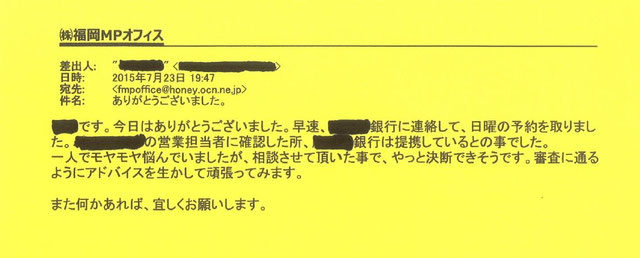 ㈱福岡MPオフィス
差出人: " " < >
日時: 2015年7月23日 19:47
宛先: <fmpoffice@honey.ocn.ne.jp>
件名: ありがとうございました。
です。今日はありがとうございました。早速、 銀行に連絡して、日曜の予約を取りまし
た。 の営業担当者に確認した所、 銀行は提携しているとの事でした。
一人でモヤモヤ悩んでいましたが、相談させて頂いた事で、やっと決断できそうです。審査に通る
ようにアドバイスを生かして頑張ってみます。
また何かあれば、宜しくお願いします。